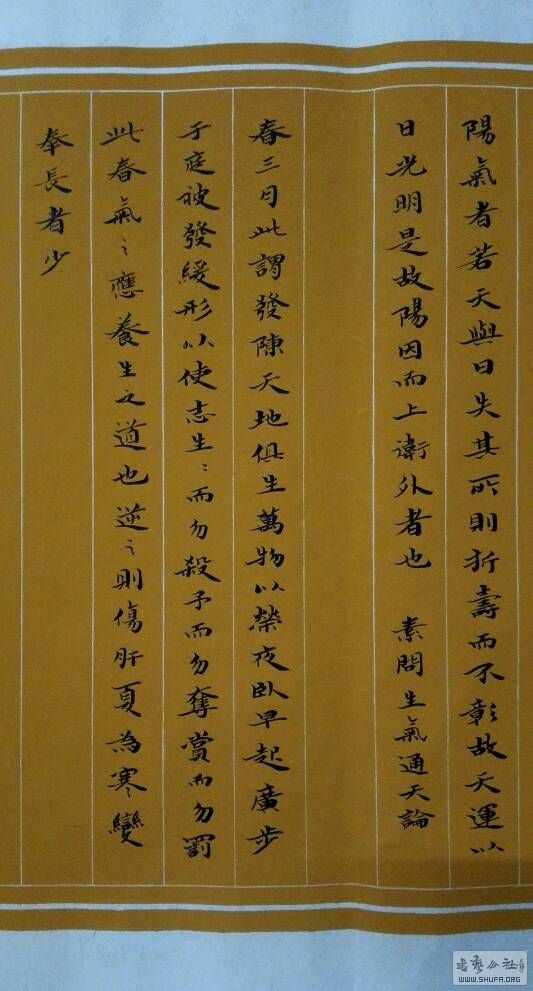 陽氣者若天與日失其所則折壽而不彰故天運以
日光明是故陽因而上衛外者也 素問生氣通天論
春三月此謂發陳天地俱生萬物以榮夜臥早起廣步
于庭被發緩形以使志生〻而勿殺予而勿奪賞而勿罰
此春氣〻應養生之道也逆〻則傷肝夏為寒變
奉長者少
WWW.SHUFA.ORG